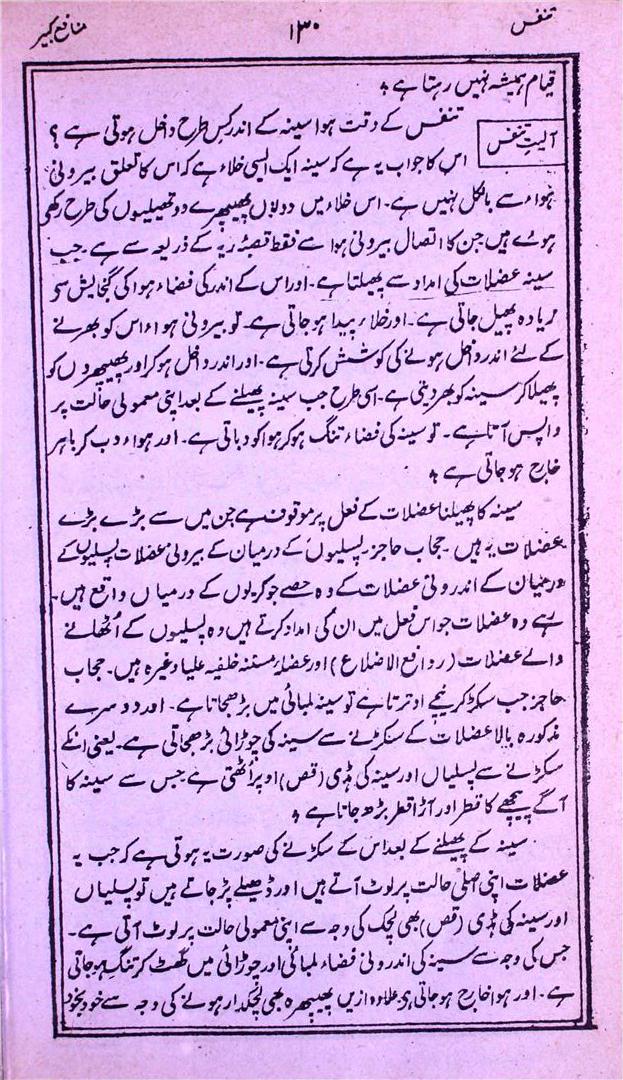 تنفس ۱۳۰ منافع کبیر
قیام ہمیشہ نہیں رہتا ہے ٭
آلیتِ تنفس
تنفس کے وقت ہوا سینہ کے اندر کس طرح داخل ہوتی ہے ؟
اس کا جواب یہ ہے کہ سینہ ایک ایسی خلاء ہے کہ اس کا تعلق بیرونی
ہواء سے بالکل نہیں ہے۔ اس خلاء میں دونوں پھیپھڑے دو تھیلیوں کی طرح رکھی
ہوئے ہیں جن کا اتصال بیرونی ہوا سے فقط قصبۂ ریہ کے ذریعہ سے ہے۔ جب
سینہ عضلات کی امداد سے پھیلتا ہے۔ اور اس کے اندر کی فضاء ہوا کی گنجایش سی
زیادہ پھیل جاتی ہے۔ اور خلاء پیدا ہو جاتی ہے۔ تو بیرونی ہواء اس کو بھرنے
کے لئے اندر داخل ہونے کی کوشش کرتی ہے۔ اور اندر داخل ہو کر اور پھیپھڑوں کو
پھیلا کر سینہ کو بھر دیتی ہے۔ اسی طرح جب سینہ پھیلنے کے بعد اپنی معمولی حالت پر
واپس آتا ہے۔ تو سینہ کی فضاء تنگ ہو کر ہوا کو دباتی ہے۔ اور ہواء دب کر باہر
خارج ہو جاتی ہے ٭
سینہ کا پھیلنا عضلات کے فعل پر موقوف ہے جن میں سے بڑے بڑے
عضلات یہ ہیں۔ حجاب حاجز۔ پسلیوں کے درمیان کے بیرونی عضلات پسلیوں کے
درمیان کے اندرونی عضلات کے وہ حصے جو کریوں کے درمیاں واقع ہیں۔
رہے وہ عضلات جو اس فعل میں ان کی امداد کرتے ہیں وہ پسلیوں کے اُٹھانے
والے عضلات (روافع الاضلاع) اور عضلہ مسننہ خلفیہ علیا وغیرہ ہیں۔ حجاب
حاجز جب سکڑ کر نیچے اوترتا ہے تو سینہ لمبائی میں بڑھ جاتا ہے۔ اور دوسرے
مذکورہ بالا عضلات کے سکڑنے سے سینہ کی چوڑائی بڑھ جاتی ہے۔ یعنی انکے
سکڑنے سے پسلیاں اور سینہ کی ہڈی (قص) اوپر اٹھتی ہے جس سے سینہ کا
آگے پیچھے کا قطر اور آڑا قطر بڑھ جاتا ہے ٭
سینہ کے پھیلنے کے بعد اس کے سکڑنے کی صورت یہ ہوتی ہے کہ جب یہ
عضلات اپنی اصلی حالت پر لوٹ آتے ہیں اور ڈھیلے پڑ جاتے ہیں تو پسلیاں
اور سینہ کی ہڈی (قص) بھی لچک کی وجہ سے اپنی معمولی حالت پر لوٹ آتی ہے۔
جس کی وجہ سے سینہ کی اندرونی فضاء لمبائی اور چوڑائی میں گھٹ کر تنگ ہو جاتی
ہے۔ اور ہوا خارج ہو جاتی ہی علاوہ ازیں پھیپھڑہ بھی لچکدار ہونے کی وجہ سے خود بخود